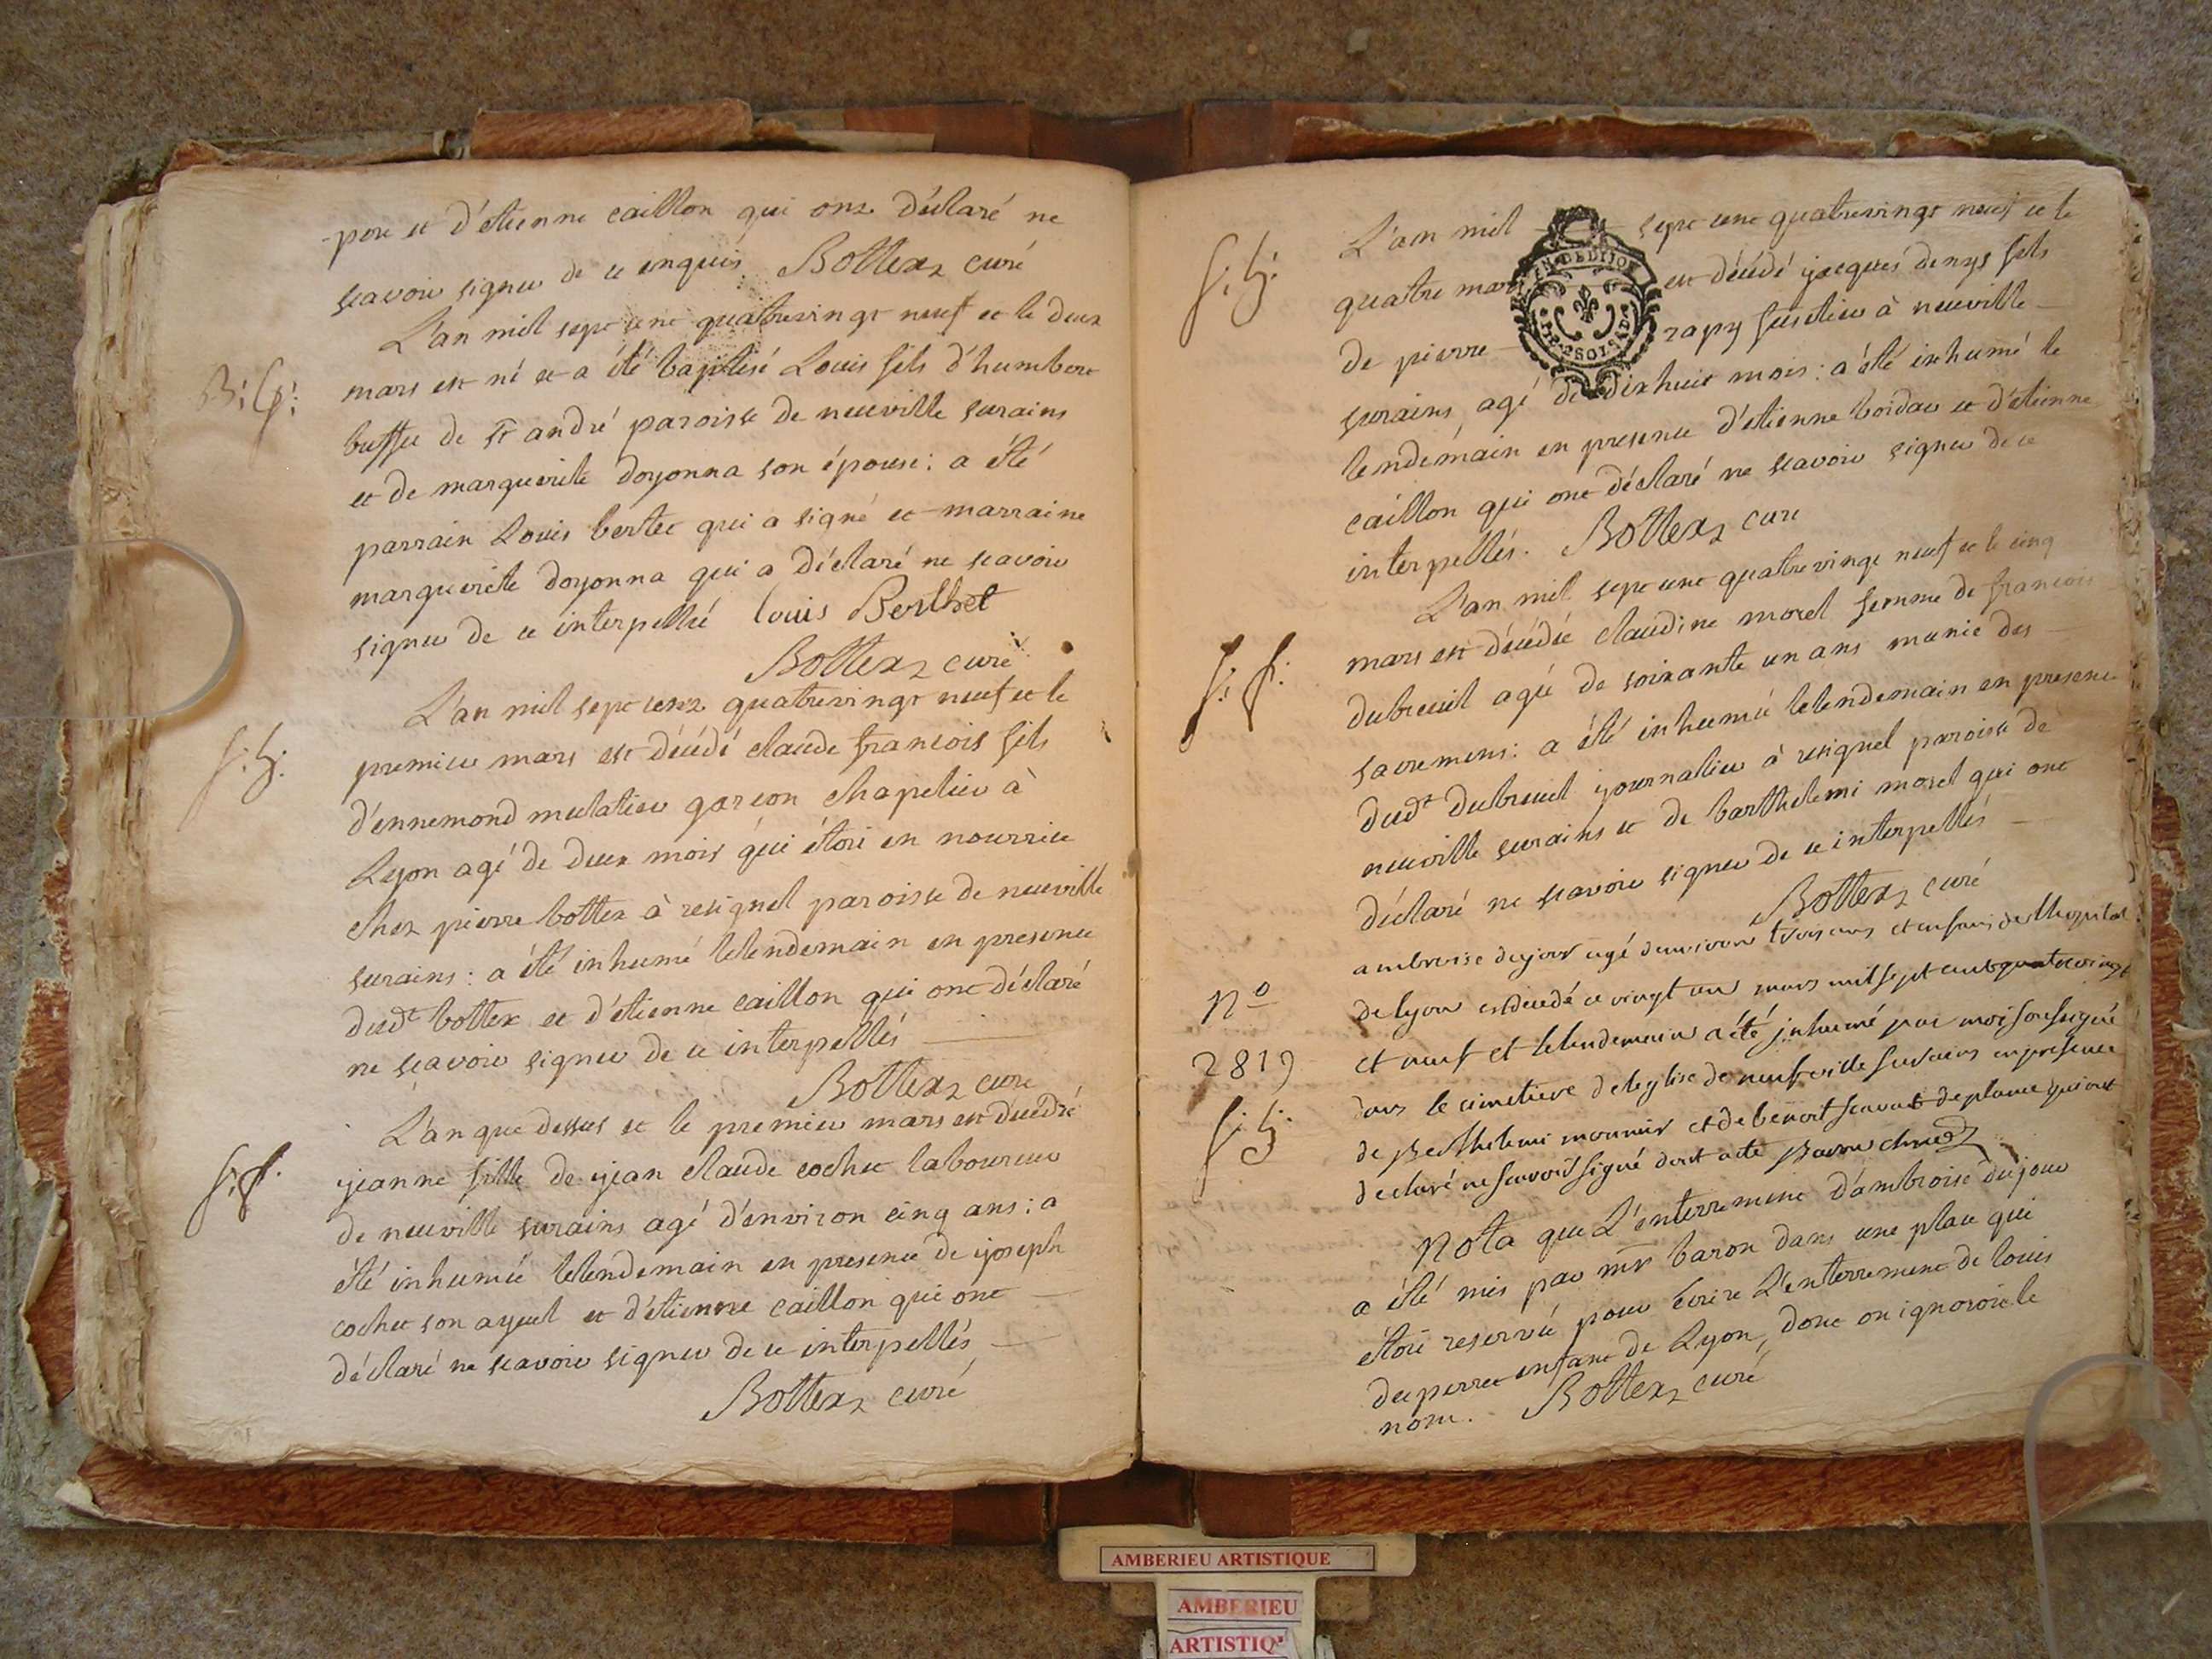 -pere et d'étienne caillon qui ont déclaré ne
scavoir signer de ce enquis Bottex curé
L'an mil sept cent quatrevingt neuf et le deux
B: G:
mars est né et a été baptisé Louis fils d'humbert
buffet de st andré paroisse de neuville surains
et de marguerite doyonna son épouse: a été
parrain Louis bertet qui a signé et marraine
marguerite doyonna qui a déclaré ne scavoir
signer de ce interpellée Louis Berthet
Bottex curé
L'an mil sept cent quatrevingt neuf et le
S: G:
premier mars est décédé claude françois fils
d'ennemond mulatier garçon chapelier à
Lyon agé de deux mois qui étoit en nourrice
chez pierre bottex à resignel paroisse de neuville
surains: a été inhumé lelendemain en presence
dudt bottex et d'étienne caillon qui ont déclaré
ne scavoir signer de ce interpellés
Bottex curé
L'an que dessus et le premier mars est décédée
S: f.
jeanne fille de jean claude cochet laboureur
de neuville surains agé d'environ cinq ans: a
été inhumée lelendemain en presence de joseph
cochet son ayeul et d'étienne caillon qui ont
déclaré ne scavoir signer de ce interpellés
Bottex curé
L'an mil sept cent quatrevingt neuf et le
S: G:
quatre mars est décédé jacques denys fils
de pierre rapy sustier à neuville
surains, agé de dixhuit mois: a été inhumé le
lendemain en presence d'étienne boidar et d'étienne
caillon qui ont déclaré ne scavoir signer de ce
interpellés. Bottex curé
L'an mil sept cent quatrevingt neuf et le cinq
S: f:
mars est décédée claudine morel femme de françois
dubreuil agée de soixante un ans munie des
sacremens: a été inhumée lelendemain en presence
dudt dubreuil journalier à resignel paroisse de
neuville surains et de barthelemi morel qui ont
déclaré ne scavoir signer de ce interpellés
Bottex curé
ambroise dujour agé denviron trois ans et enfans de Lhopital
No
de lyon est décédé ce vingt un mars mil sept cent quatrevingt
2819
et neuf et lelendemain a été inhumé par moi soussigné
S: G:
dans le cimetiere de leglise de neufville surains en presence
de Berthelemi monnier et de benoit de plane qui ont
declaré ne scavoir signé dont acte
Nota que L'enterrement d'ambroise dujour
a été mis par mr baron dans une place qui
étoit reservée pour écrire L'enterrement de louis
duperret enfant de Lyon, dont on ignoroit le
nom. Bottex curé
AMBERIEU ARTISTIQUE
AMBERIEU
ARTISTIQ